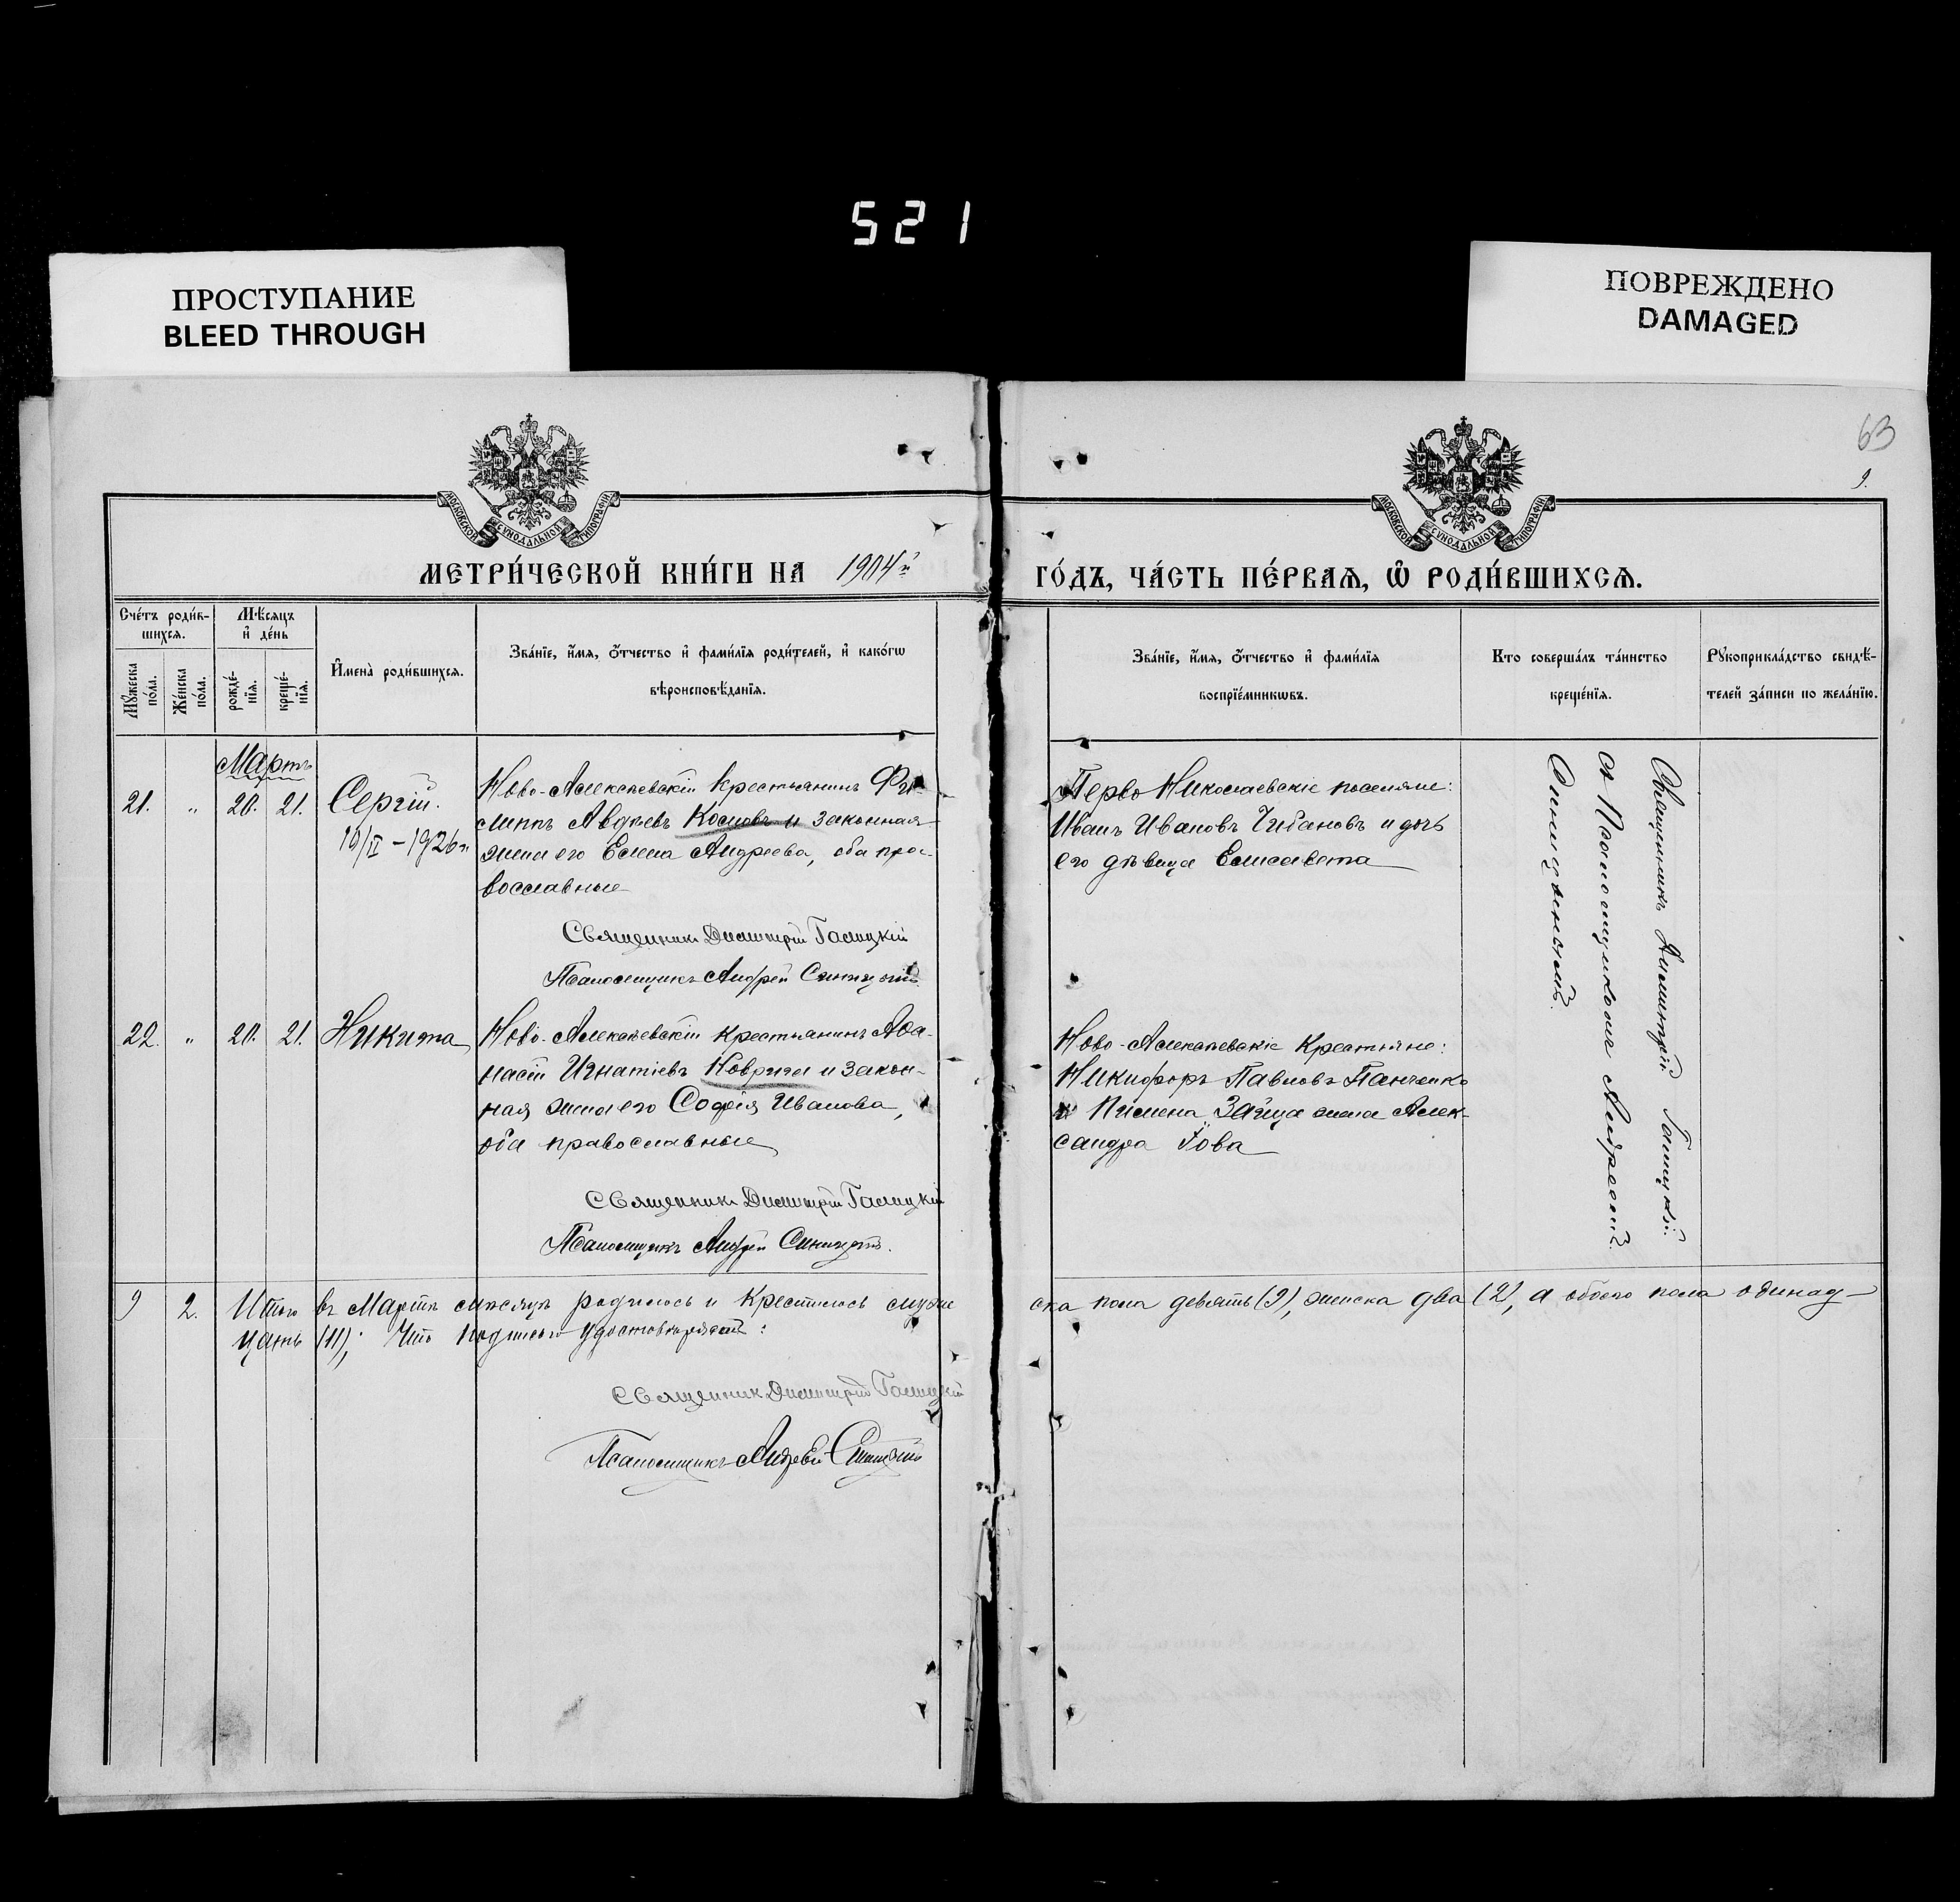 521
ПРОСТУПАНИЕ
BLEED THROUGH
ПОВРЕЖДЕНО
DAMAGED
63
9.
МОСКОВСКОЙ СѴНОДАЛЬНОЙ ТИПОГРАФІИ
МОСКОВСКОЙ СѴНОДАЛЬНОЙ ТИПОГРАФІИ
МЕТРИ́ЧЕСКОЙ КНИ́ГИ НА 1904й
ГО́ДЪ, ЧА́СТЬ ПЕ́РВАѦ, Ѽ РОДИ́ВШИХСѦ.
Сче́тъ роди́в-
шихсѧ.
Мꙋ́жеска
по́ла.
Же́нска
по́ла.
Мѣ́сѧцъ
и҆ де́нь
рожде́-
нїѧ.
креще́-
нїѧ.
И҆мена̀ роди́вшихсѧ.
Зва́нїе, и҆́мѧ, ѻ҆́тчество и҆ фами́лїѧ роди́телей, и҆ како́гѡ
вѣроисповѣ́данїѧ.
Зва́нїе, и҆́мѧ, ѻ҆́тчество и҆ фами́лїѧ
воспрїе́мникѡвъ.
Кто соверша́лъ та́инство
креще́нїѧ.
Рꙋкоприкла́дство свидѣ́-
телей за́писи по жела́нїю.
Мартъ
21. " 20. 21. Сергій.
19/IV – 1926 г.
Ново-Алексѣевскій крестьянинъ Фи-
липпъ Авдѣевъ Козловъ и законная
жена его Елена Андреева, оба пра-
вославные
Священникъ Димитрій Галицкій
Псаломщикъ Андрей Синицкій
Перво Николаевскіе поселяне:
Иванъ Ивановъ Чибановъ и дочь
его дѣвица Елисавета
Священникъ Димитрій Галицкій
съ Псаломщикомъ Андреемъ
22. " 20. 21. Никита
Ново-Алексѣевскій крестьянинъ Аѳа-
насій Игнатіевъ Коврига и закон-
ная жена его Софія Иванова,
оба православные
Священникъ Димитрій Галицкій
Псаломщикъ Андрей
Ново-Алексѣевскіе Крестьяне:
Никифоръ Павловъ Панченко
и Пимена Зайца жена Алек-
сандра Іова
9 2. Итого въ Мартѣ мѣсяцѣ родилось и крестилось муже
ска пола девять (9), женска два (2), а обоего пола одинад-
цать (11); Что подписью удостовѣряемъ:
Священникъ Димитрій Галицкій
Псаломщикъ Андрей